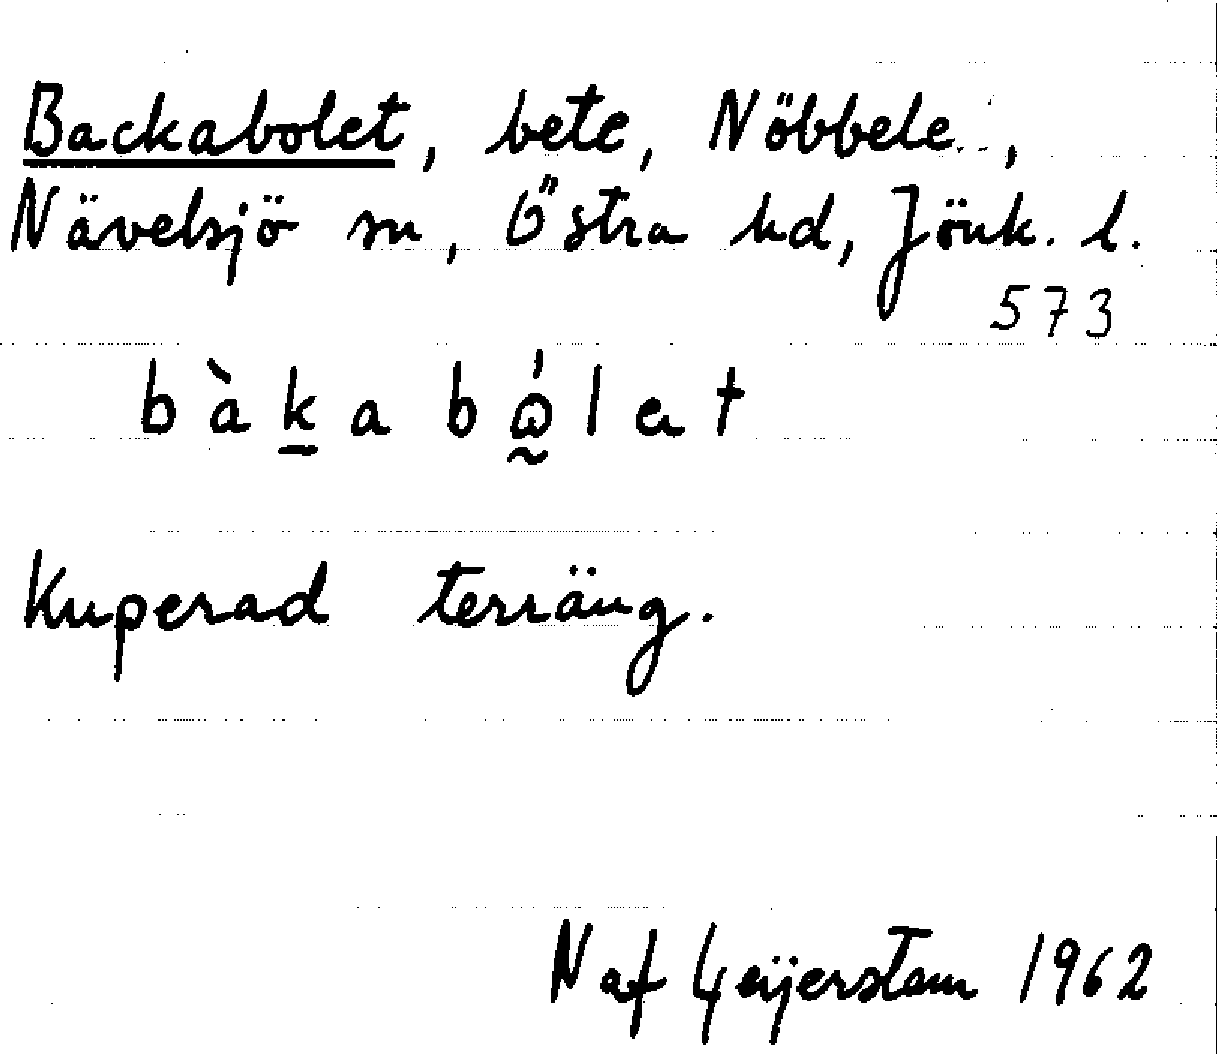 Backabolet, bete, Nöbbele,
Nävelsjö sn, Östra hd, Jönk. l.
573
Kuperad terräng.
N af Geijerstam 1962